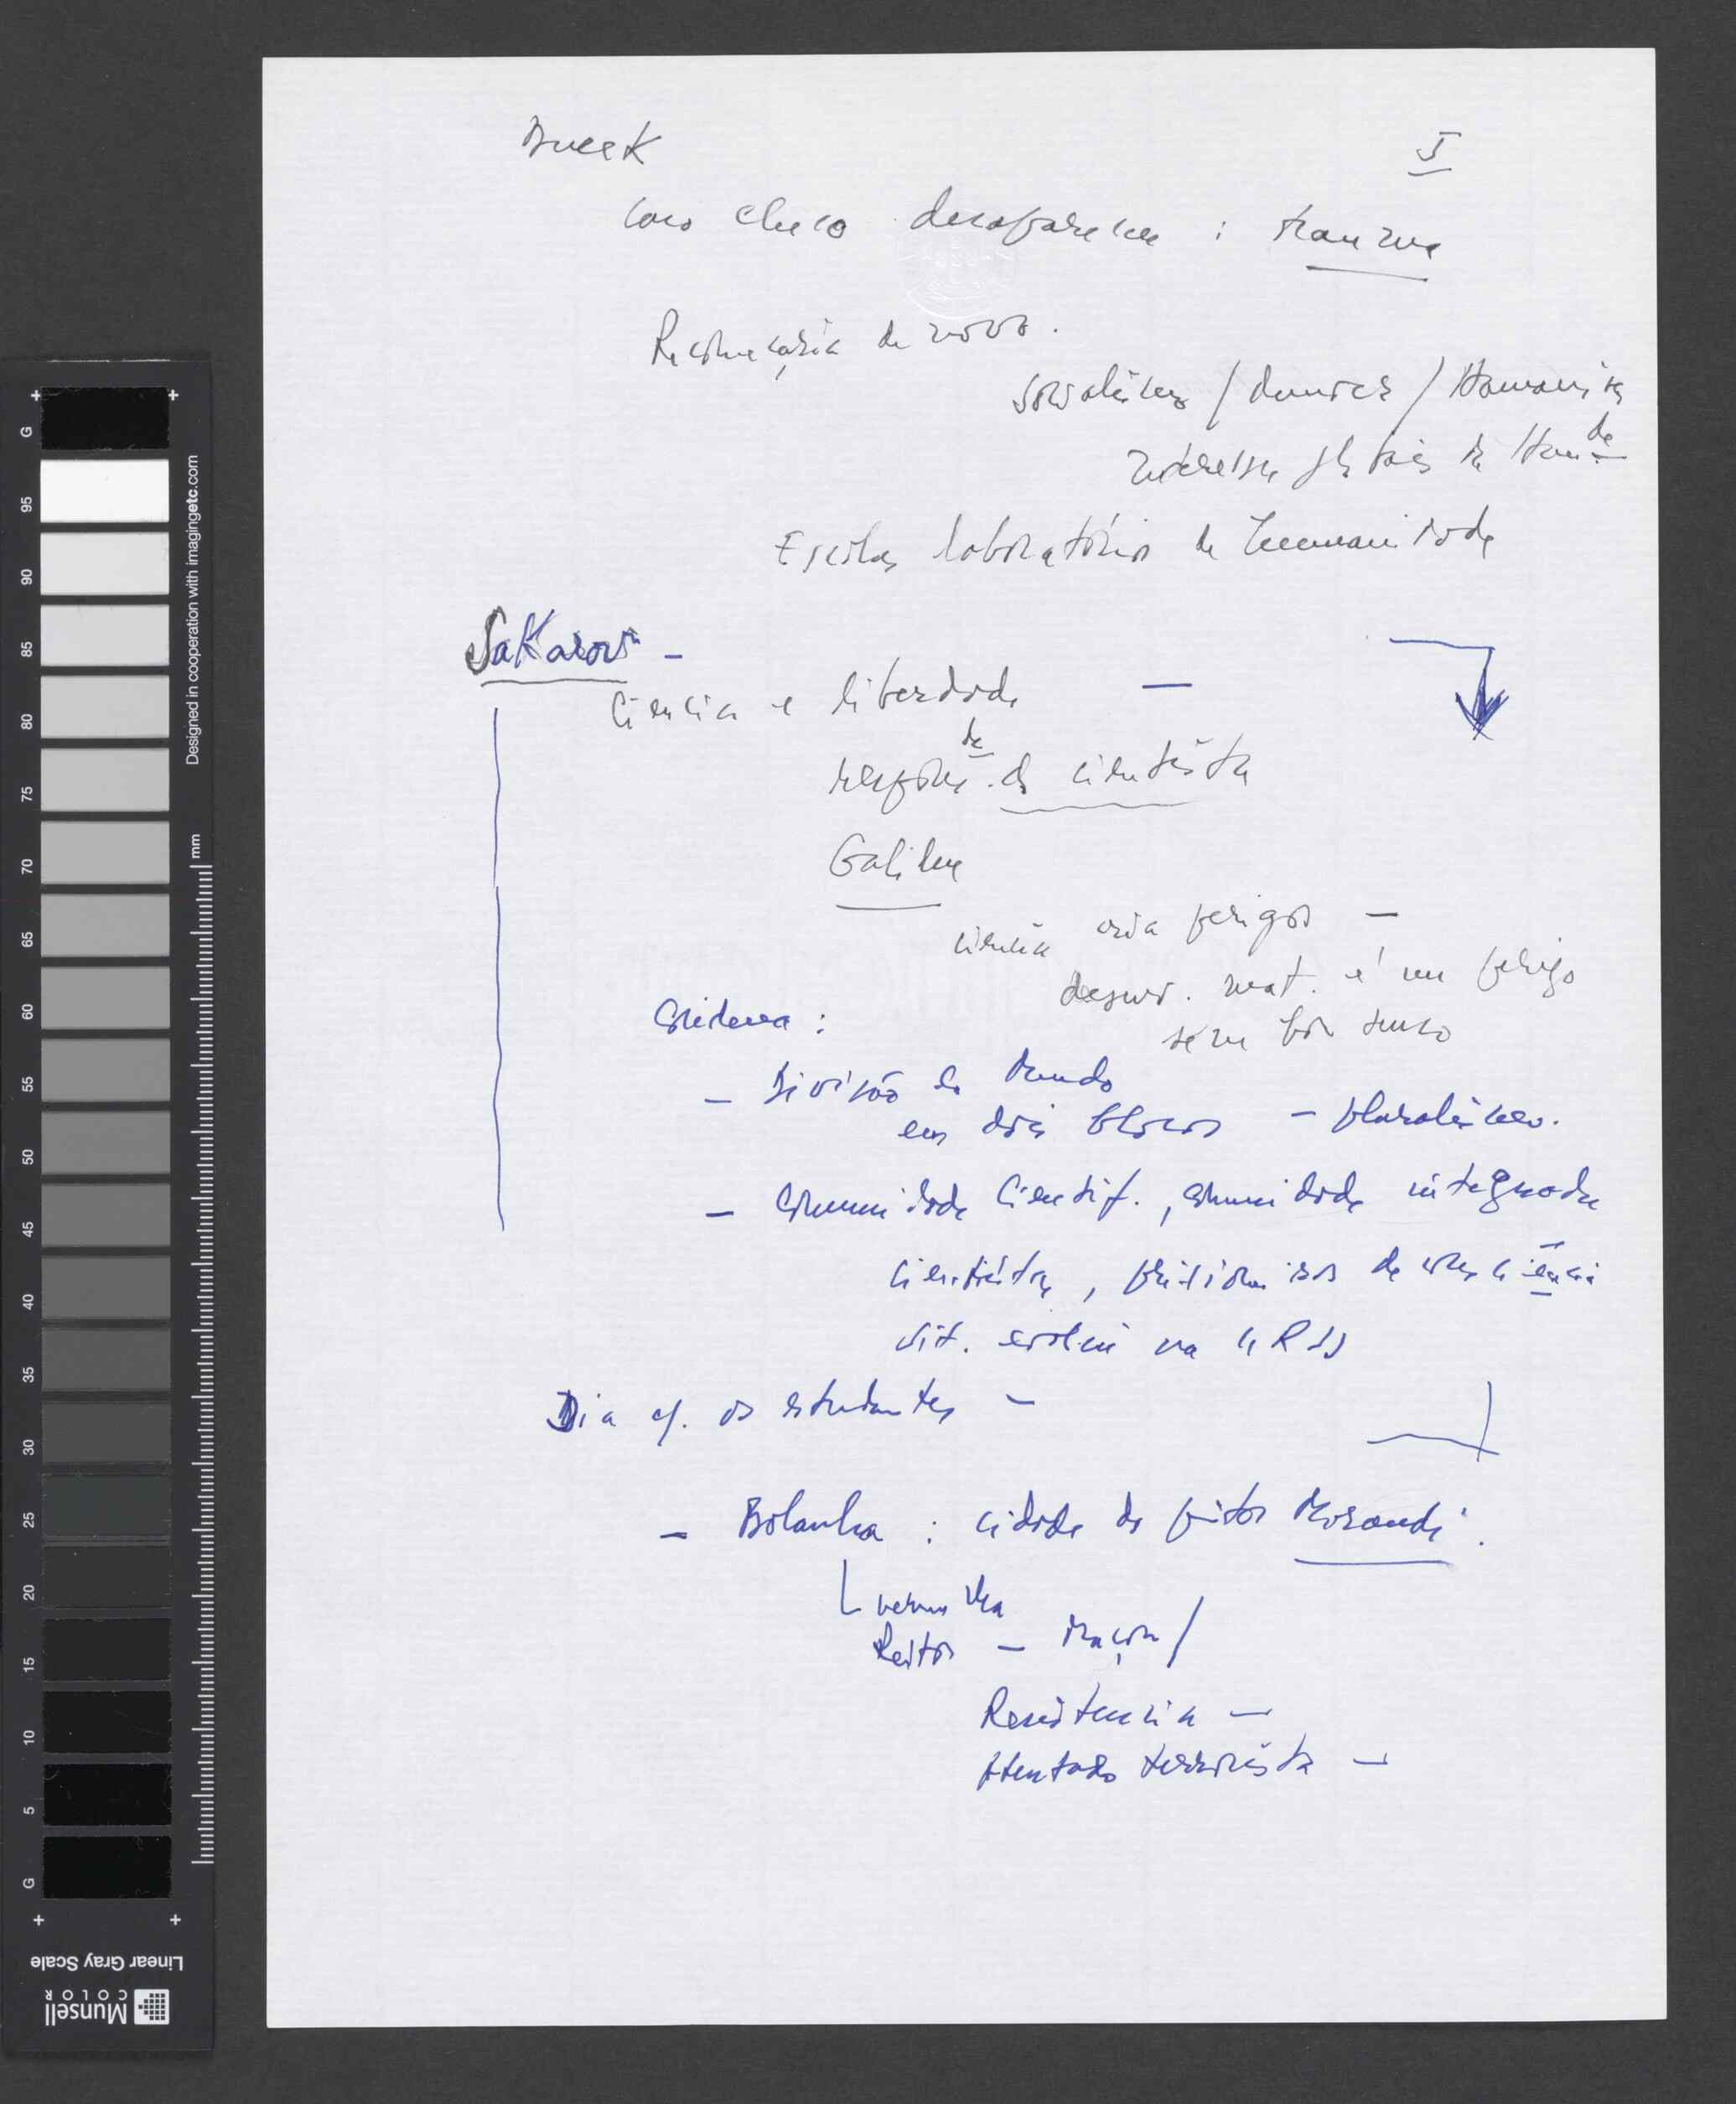 I
caso checo desapareceu : trauma
Recomeçaria de novo.
socialismo / democr / Humanis
interesses globais da Human.de
Escolas laboratórios de humanidade
Sakarov -
Ciencia e liberdade —
respons.de do cientista
Galileu
ciencia cria perigos —
desenv. mat. é um perigo
sem bom senso
Sistema :
- Divisão do Mundo
em dois blocos - pluralismo.
- Comunidade Cientif., comunidade integrada
cientistas, prisioneiros de consciência
sit. existen na URSS
Dia c/. os estudantes -
- Bolonha : cidade do pintor Morandi.
Reitor - Maçon /
Resistencia —
Atentado terrorista —
G
95
90
85
80
75
70
65
60
55
50
45
40
35
30
25
20
15
10
5
G
mm
Designed in cooperation with imagingetc.com
Linear Gray Scale
Munsell
COLOR